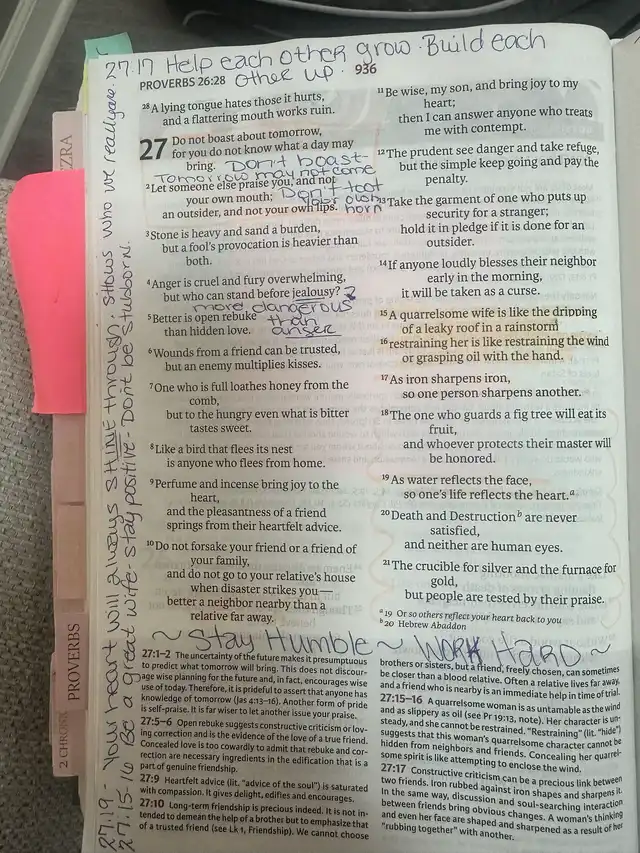 27:17 Help each other grow. Build each
other up.
PROVERBS 26:28
936
28 A lying tongue hates those it hurts,
and a flattering mouth works ruin.
27 Do not boast about tomorrow,
for you do not know what a day may
bring. Don't boast-
Tomorrow may not come
2 Let someone else praise you, and not
your own mouth; Don't toot
an outsider, and not your own lips. your own
horn
3 Stone is heavy and sand a burden,
but a fool's provocation is heavier than
both.
4 Anger is cruel and fury overwhelming,
but who can stand before jealousy?
more dangerous
than
anger
5 Better is open rebuke
than hidden love.
6 Wounds from a friend can be trusted,
but an enemy multiplies kisses.
7 One who is full loathes honey from the
comb,
but to the hungry even what is bitter
tastes sweet.
8 Like a bird that flees its nest
is anyone who flees from home.
9 Perfume and incense bring joy to the
heart,
and the pleasantness of a friend
springs from their heartfelt advice.
10 Do not forsake your friend or a friend of
your family,
and do not go to your relative's house
when disaster strikes you—
better a neighbor nearby than a
relative far away.
11 Be wise, my son, and bring joy to my
heart;
then I can answer anyone who treats
me with contempt.
12 The prudent see danger and take refuge,
but the simple keep going and pay the
penalty.
13 Take the garment of one who puts up
security for a stranger;
hold it in pledge if it is done for an
outsider.
14 If anyone loudly blesses their neighbor
early in the morning,
it will be taken as a curse.
15 A quarrelsome wife is like the dripping
of a leaky roof in a rainstorm
16 restraining her is like restraining the wind
or grasping oil with the hand.
17 As iron sharpens iron,
so one person sharpens another.
18 The one who guards a fig tree will eat its
fruit,
and whoever protects their master will
be honored.
19 As water reflects the face,
so one's life reflects the heart.a
20 Death and Destructionb are never
satisfied,
and neither are human eyes.
21 The crucible for silver and the furnace for
gold,
but people are tested by their praise.
a 19 Or so others reflect your heart back to you
b 20 Hebrew Abaddon
~ Stay Humble ~ Work Hard ~
27:1–2 The uncertainty of the future makes it presumptuous
to predict what tomorrow will bring. This does not discour-
age wise planning for the future and, in fact, encourages wise
use of today. Therefore, it is prideful to assert that anyone has
knowledge of tomorrow (Jas 4:13–16). Another form of pride
is self-praise. It is far wiser to let another issue your praise.
27:5–6 Open rebuke suggests constructive criticism or lov-
ing correction and is the evidence of the love of a true friend.
Concealed love is too cowardly to admit that rebuke and cor-
rection are necessary ingredients in the edification that is a
part of genuine friendship.
27:9 Heartfelt advice (lit. "advice of the soul") is saturated
with compassion. It gives delight, edifies and encourages.
27:10 Long-term friendship is precious indeed. It is not in-
tended to demean the help of a brother but to emphasize that
of a trusted friend (see Lk 1, Friendship). We cannot choose
brothers or sisters, but a friend, freely chosen, can sometimes
be closer than a blood relative. Often a relative lives far away,
and a friend who is nearby is an immediate help in time of trial.
27:15–16 A quarrelsome woman is as untamable as the wind
and as slippery as oil (see Pr 19:13, note). Her character is un-
steady, and she cannot be restrained. "Restraining" (lit. "hide")
suggests that this woman's quarrelsome character cannot be
hidden from neighbors and friends. Concealing her quarrel-
some spirit is like attempting to enclose the wind.
27:17 Constructive criticism can be a precious link between
two friends. Iron rubbed against iron shapes and sharpens it.
In the same way, discussion and soul-searching interaction
between friends bring obvious changes. A woman's thinking
and even her face are shaped and sharpened as a result of her
"rubbing together" with another.
27:19 - Your heart will always SHINE through. Shows who we really are
27:15-16 Be a great wife- stay positive- Don't be stubborn.
EZRA
PROVERBS
2 CHRON